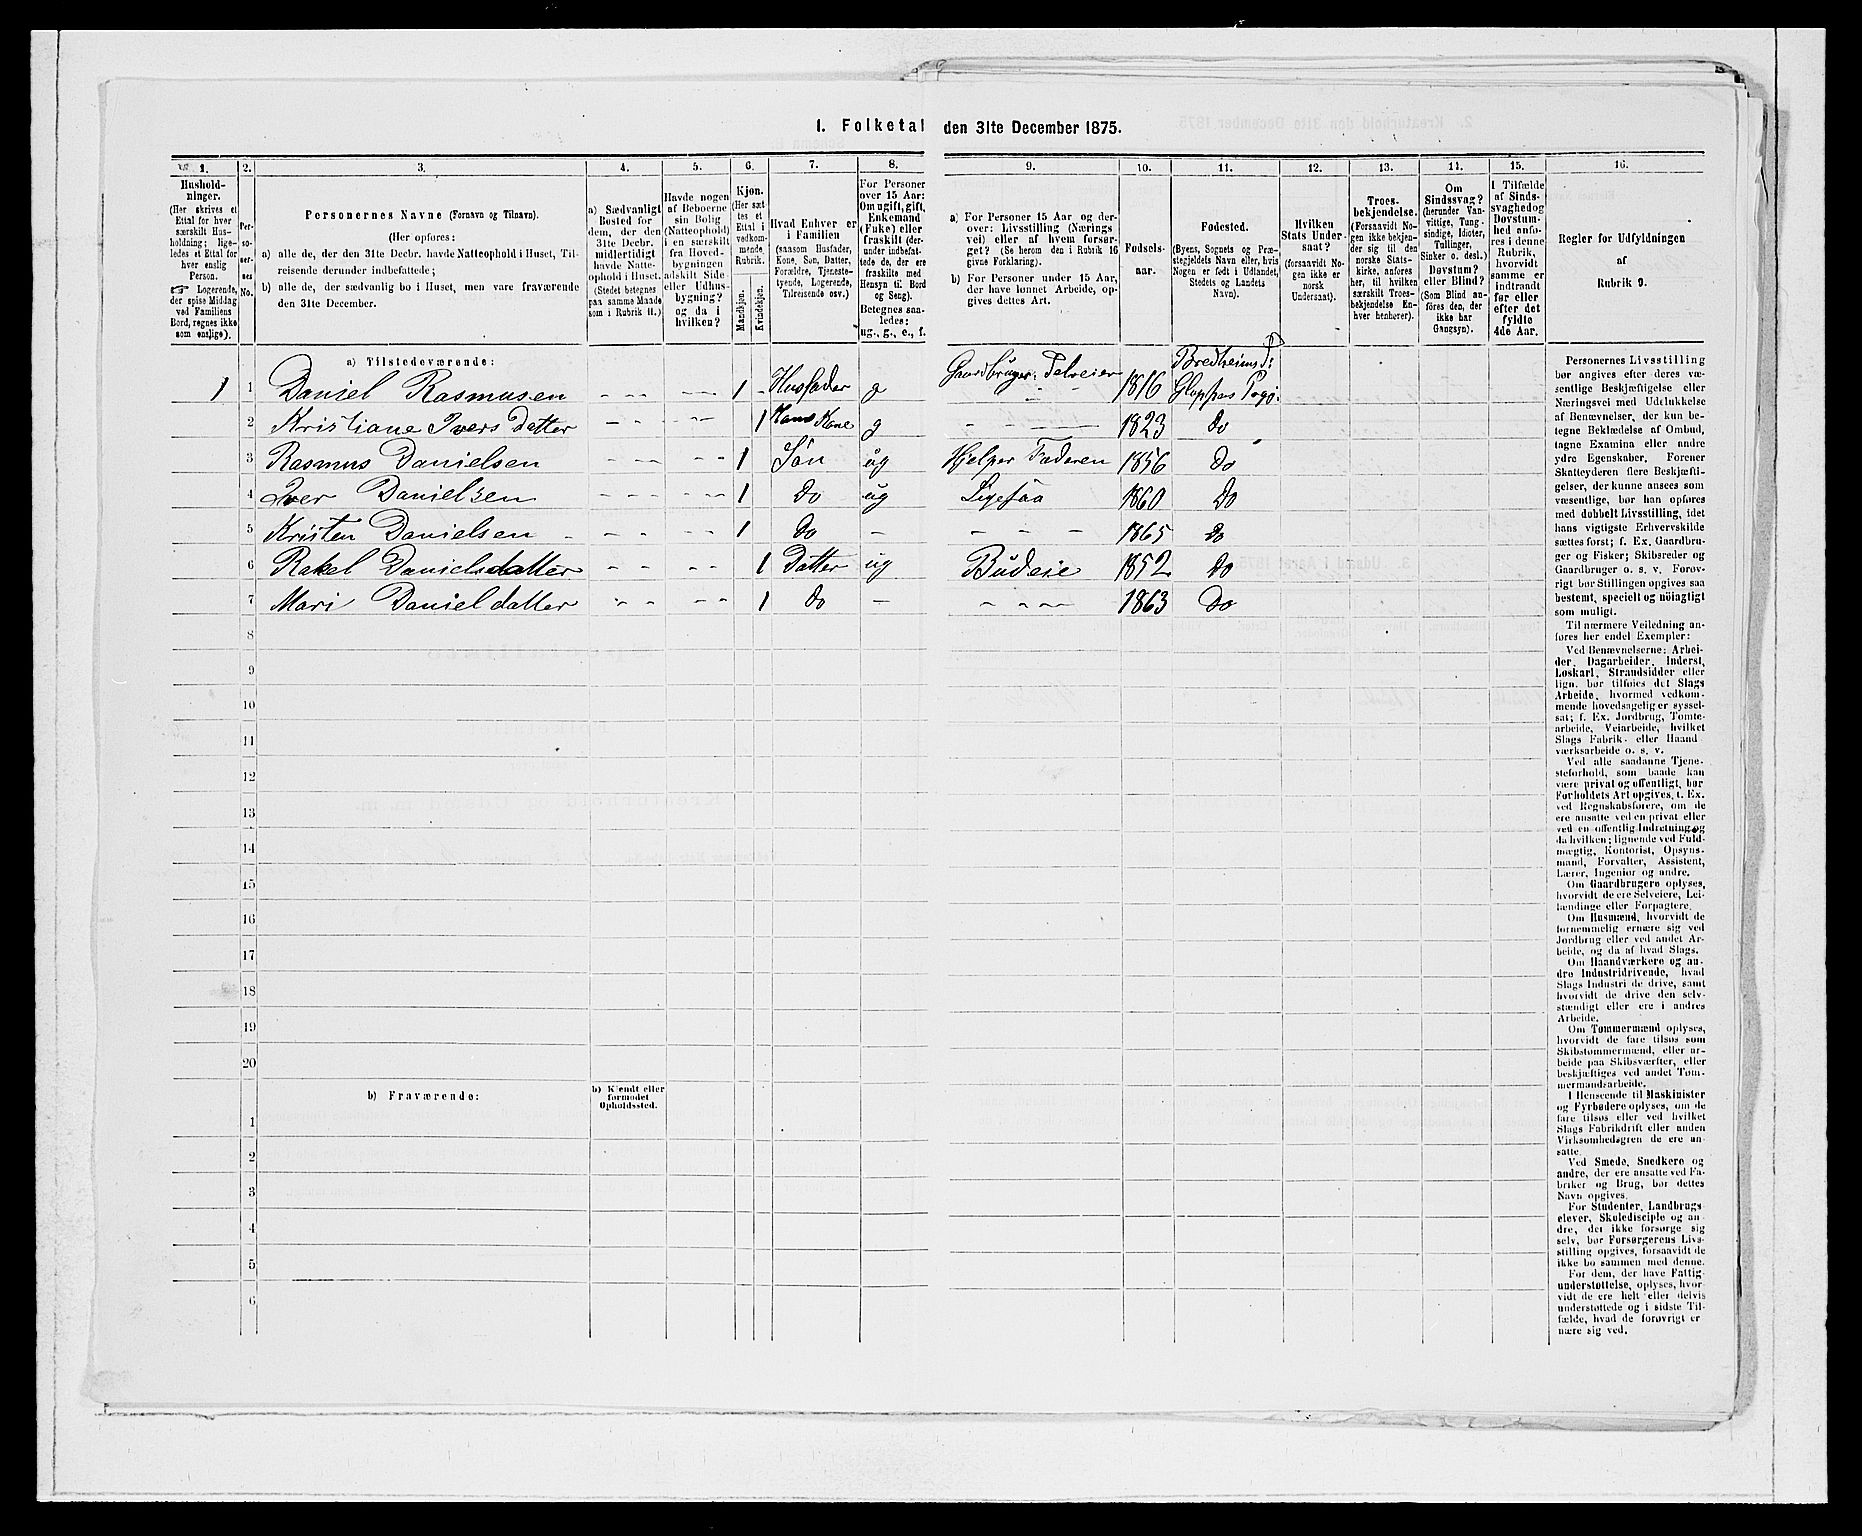 1. Folketal den 31te December 1875.
1. 2. 3. 4. 5. 6. 7. 8. 9. 10. 11. 12. 13. 14. 15. 16.
Hushold-
ninger.
(Her skrives et
Ettal for hver
særskilt Hus-
holdning; lige-
ledes et Ettal for
hver enslig
Person.
☞ Logerende,
der spise Middag
ved Familiens
Bord, regnes ikke
som enslige).
Per-
so-
ner-
nes
No.
Personernes Navne (Fornavn og Tilnavn).
(Her opføres:
a) alle de, der den 31te Decbr. havde Natteophold i Huset, Til-
reisende derunder indbefattede;
b) alle de, der sædvanlig bo i Huset, men vare fraværende
den 31te December.
a) Sædvanligt
Bosted for
dem, der den
31te Decbr.
midlertidigt
havde Natte-
ophold i Huset.
(Stedet betegnes
paa samme Maade
som i Rubrik 11.)
Havde nogen
af Beboerne
sin Bolig
(Natteophold)
i en særskilt
fra Hoved-
bygningen
adskilt Side
eller Udhus-
bygning?
og da i
hvilken?
Kjøn.
(Her sæt
tes et
Ettal i
vedkom-
mende
Rubrik.
Mandkjøn.
Kvindekjøn.
Hvad Enhver er
i Familien
(saasom Husfader,
Kone, Søn, Datter,
Forældre, Tjeneste-
tyende, Logerende,
Tilreisende osv.)
For Personer
over 15 Aar:
Om ugift, gift,
Enkemand
(Enke) eller
fraskilt (der-
under indbefat-
tede de, der ere
fraskilte med
Hensyn til Bord
og Seng).
Betegnes saa-
ledes:
ug., g., e., f.
a) For Personer 15 Aar og der-
over: Livsstilling (Nærings
vei) eller af hvem forsør-
get? (Se herom den i Rubrik 16
givne Forklaring).
b) For Personer under 15 Aar,
der have lønnet Arbeide, op-
gives dettes Art.
Fødsels-
aar.
Fødested.
(Byens, Sognets og Præ-
stegjeldets Navn eller, hvis
Nogen er født i Udlandet,
Stedets og Landets
Navn).
Hvilken
Stats Under-
saat?
(forsaavidt No-
gen ikke er
norsk
Undersaat).
Troes-
bekjendelse.
(Forsaavidt No-
gen ikke bekjen-
der sig til den
norske Stats-
kirke, anføres
her, til hvilken
særskilt Troes-
bekjendelse En-
hver henhører).
Om
Sindssvag?
(herunder Van-
vittige, Tung-
sindige, Idioter,
Tullinger,
Sinker o. desl.)
Døvstum?
eller Blind?
(Som Blind an-
føres den, der
ikke har
Gangsyn).
I Tilfælde
af Sinds-
svaghed og
Døvstum-
hed anfø-
res i denne
Rubrik,
hvorvidt
samme er
indtraadt
før eller
efter det
fyldte
4de Aar.
Regler for Udfyldningen
af
Rubrik 9.
a) Tilstedeværende:
Bredheims
1 1 Daniel Rasmusen - - - - - 1 - Husfader g Gaardbruger, Selveier 1816 Gloppen
2 Kristiane Ivers Datter - - - - - 1 Hans Kone g - - - 1823 do
3 Rasmus Danielsen - - - - - 1 Søn ug Hjelper Faderen 1856 Do
4 Iver Danielsen - - - - - 1 Do ug Ligesaa 1860 Do
5 Kristen Danielsen - - - - - 1 Do - - - - 1865 Do
6 Rakel Danielsdatter - - - - 1 Datter ug Budeie 1852 Do
7 Mari Danieldatter - - - - 1 do - - - - 1863 Do
8
9
10
11
12
13
14
15
16
17
18
19
20
b) Fraværende:
b) Kjendt eller
formodet
Opholdssted.
1
2
3
4
5
6
Personernes Livsstilling
bør angives efter deres væ-
sentlige Beskjæftigelse eller
Næringsvei med Udelukkelse
af Benævnelser, der kun be-
tegne Beklædelse af Ombud,
tagne Examina eller andre
ydre Egenskaber. Forener
Skatteyderen flere Beskjæfti-
gelser, der kunne ansees som
væsentlige, bør han opføres
med dobbelt Livsstilling, idet
hans vigtigste Erhvervskilde
sættes først; f. Ex. Gaardbru-
ger og Fisker; Skibsreder og
Gaardbruger o. s. v. Forøv-
rigt bør Stillingen opgives saa
bestemt, specielt og nöiagtigt
som muligt.
Til nærmere Veiledning an-
føres her endel Exempler:
Ved Benævnelserne: Arbei-
der, Dagarbeider, Inderst,
Løskarl, Strandsidder eller
lign. bør tilføies det Slags
Arbeide, hvormed vedkom-
mende hovedsagelig er syssel-
sat; f. Ex. Jordbrug, Tomte-
arbeide, Veiarbeide, hvilket
Slags Fabrik- eller Haand-
værksarbeide o. s. v.
Ved alle saadanne Tjene-
steforhold, som baade kan
være privat og offentligt, bør
Forholdets Art opgives, t. Ex.
ved Regnskabsførere, om de
ere ansatte ved en privat eller
ved en offentlig Indretning og
da hvilken; lignende ved Fuld-
mægtig, Kontorist, Opsyns-
mand, Forvalter, Assistent,
Lærer, Ingeniør og andre.
Om Gaardbrugere oplyses,
hvorvidt de ere Selveiere, Lei-
lændinge eller Forpagtere.
Om Husmænd, hvorvidt de
fornemmelig ernære sig ved
Jordbrug eller ved andet Ar-
beide, og da af hvad Slags.
Om Haandværkere og an-
dre Industridrivende, hvad
Slags Industri de drive, samt
hvorvidt de drive den selv-
stændigt eller ere i andres
Arbeide.
Om Tømmermænd oplyses,
hvorvidt de fare tilsøs som
Skibstømmermænd, eller ar-
beide paa Skibsværfter, eller
beskjæftiges ved andet Tøm-
mermandsarbeide.
I Henseende til Maskinister
og Fyrbødere oplyses, om de
fare tilsøs eller ved hvilket
Slags Fabrikdrift eller anden
Virksomhedsgren de ere an-
satte.
Ved Smede, Snedkere og
andre, der ere ansatte ved Fa-
briker og Brug, bør dettes
Navn opgives.
For Studenter, Landbrugs-
elever, Skoledisciple og an-
dre, der ikke forsørge sig
selv, bør Forsørgerens Livs-
stilling opgives, forsaavidt de
ikke bo sammen med denne.
For dem, der have Fattig-
understøttelse, oplyses, hvor-
vidt de ere helt eller delvis
understøttede og i sidste Til-
fælde, hvad de forøvrigt er
nære sig ved.